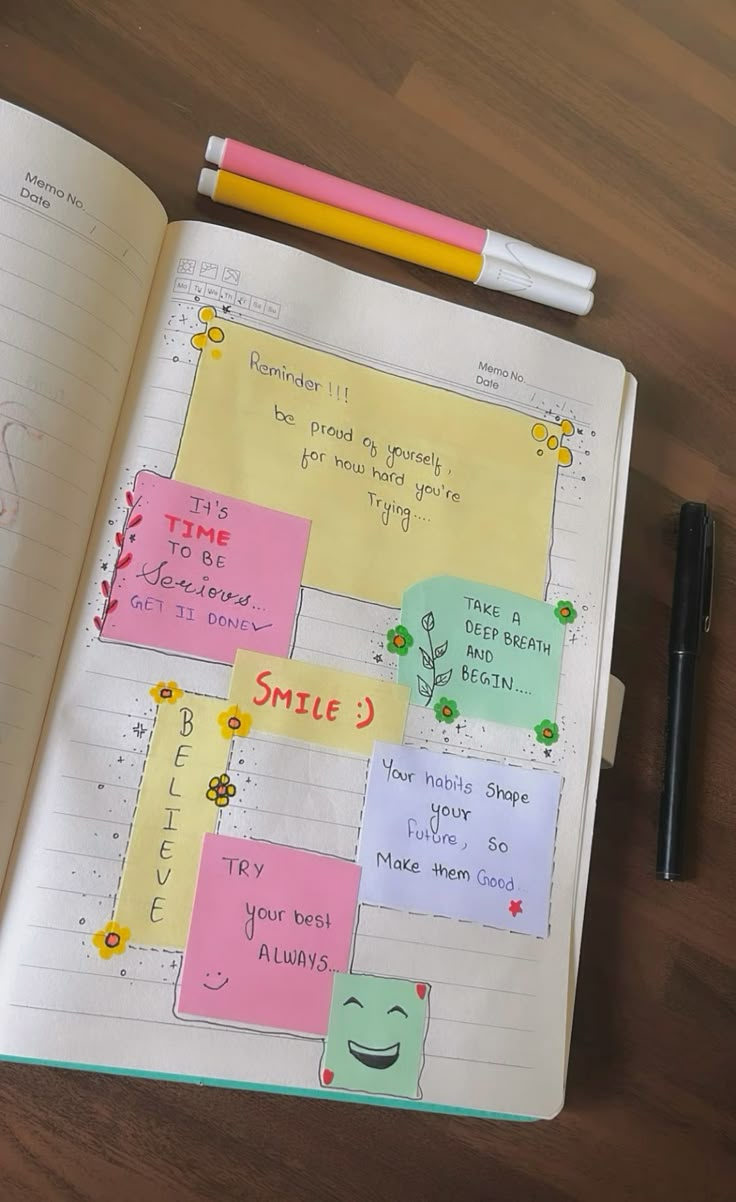 Memo No.
Date
Mo Tu We Th Fr Sa Su
Memo No.
Date
Reminder !!!
be proud of yourself,
for how hard you're
Trying....
It's
TIME
TO BE
Serious...
GET II DONE✓
TAKE A
DEEP BREATH
AND
BEGIN....
SMILE :)
B
E
L
I
E
V
E
Your habits Shape
your
future, so
Make them Good...
TRY
your best
ALWAYS...